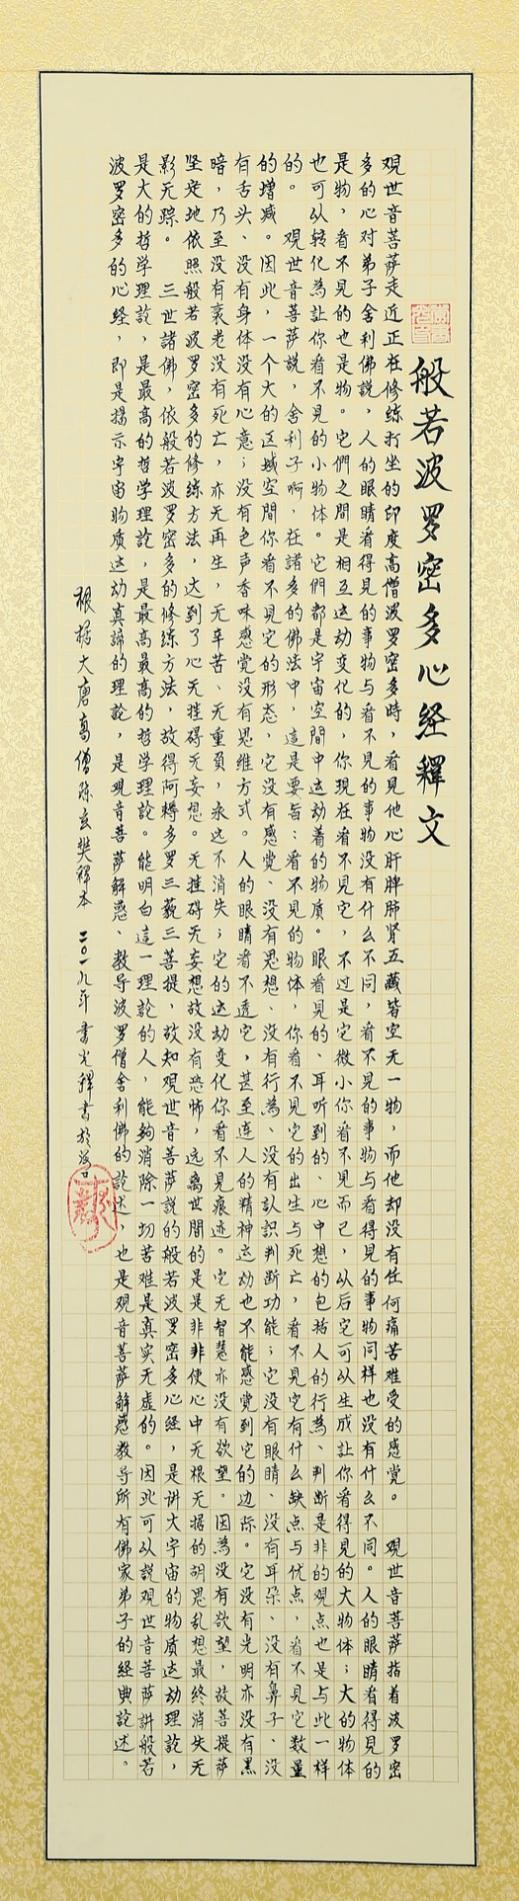 般若波罗密多心经釋文
观世音菩萨走近正在修练打坐的印度高僧波罗密多時，看見他心肝脾肺肾五藏皆空无一物，而他却没有任何痛苦难受的感觉。 观世音菩萨指着波罗密
多的心对弟子舍利佛説，人的眼睛看得見的事物与看不見的事物没有什么不同，看不見的事物与看得見的事物同样也没有什么不同。人的眼睛看得見的
是物，看不見的也是物。它們之間是相互运动变化的，你現在看不見它，不过是它微小你看不見而已，以后它可以生成让你看得見的大物体；大的物体
也可以转化為让你看不見的小物体。它們都是宇宙空間中运动着的物质。眼看見的、耳听到的、心中想的包括人的行為、判断是非的观点也是与此一样
的。 观世音菩萨説，舍利子啊，在諸多的佛法中，這是要旨：看不見的物体，你看不見它的出生与死亡，看不見它有什么缺点与优点，看不見它数量
的增减。因此，一个大的区域空間你看不見它的形态，它没有感觉、没有思想、没有行為、没有認識判断功能；它没有眼睛、没有耳朵、没有鼻子、没
有舌头、没有身体没有心意；没有色声香味感觉没有思维方式。人的眼睛看不透它，甚至连人的精神运动也不能感觉到它的边际。它没有光明亦没有黑
暗，乃至没有衰老没有死亡，亦无再生，无辛苦、无重負，永远不消失；它的运动变化你看不見痕迹。它无智慧亦没有欲望。因為没有欲望，故菩提萨
坚定地依照般若波罗密多的修练方法，达到了心无挂碍无妄想。无挂碍无妄想故没有恐怖，远离世間的是是非非使心中无根无据的胡思乱想最終消失无
影无踪。 三世諸佛，依般若波罗密多的修练方法，故得阿耨多罗三藐三菩提，故知观世音菩萨説的般若波罗密多心经，是讲大宇宙的物质运动理論，
是大的哲学理論，是最高的哲学理論，是最高最高的哲学理論。能明白這一理論的人，能夠消除一切苦难是真实无虚的。因此可以説观世音菩萨讲般若
波罗密多的心经，即是揭示宇宙物质运动真諦的理論，是观音菩萨解惑、教导波罗僧舍利佛的論述，也是观音菩萨解惑教导所有佛家弟子的经典論述。
根据大唐高僧陈玄奘释本 二〇一九年 書光释書於汉口